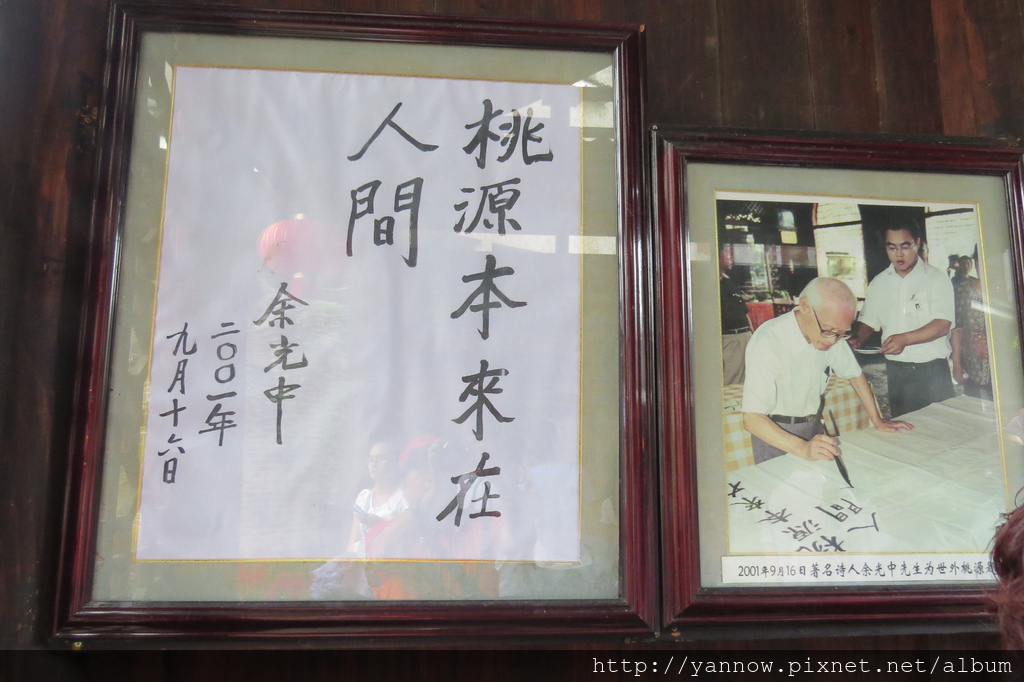 桃源本來在
人間
余光中
二〇〇一年
九月十六日
人間
源
2001年9月16日著名诗人余光中先生为世外桃源
http://yannow.pixnet.net/album